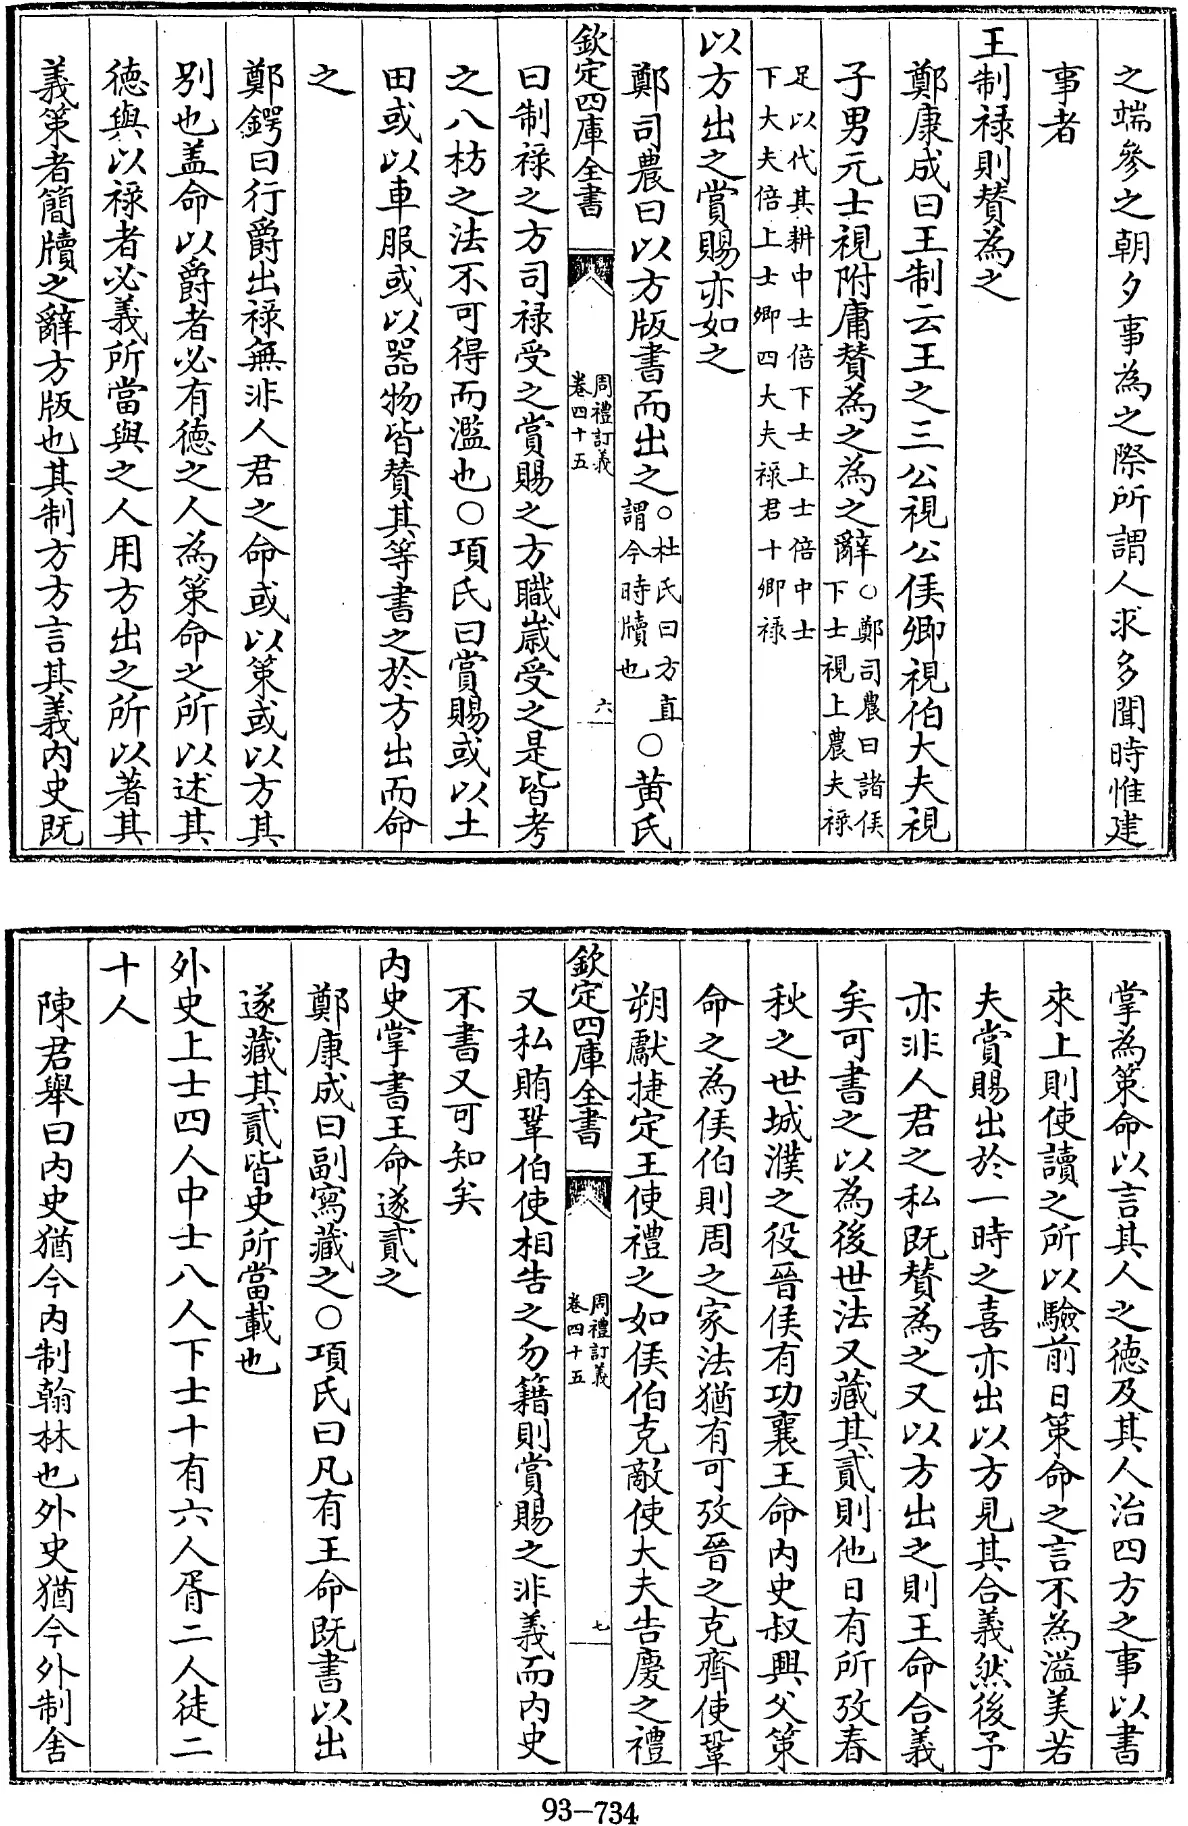 之端參之朝夕事為之際所謂人求多聞時惟建
事者
王制禄則賛為之
鄭康成曰王制云王之三公視公侯卿視伯大夫視
子男元士視附庸賛為之為之辭○鄭司農曰諸侯
下士視上農夫禄
足以代其耕中士倍下士上士倍中士
下大夫倍上士卿四大夫禄君十卿禄
以方出之賞賜亦如之
鄭司農曰以方版書而出之○杜氏曰方直
謂今時牘也○黄氏
欽定四庫全書
周禮訂義
卷四十五
六
曰制禄之方司禄受之賞賜之方職嵗受之是皆考
之八枋之法不可得而濫也○項氏曰賞賜或以土
田或以車服或以器物皆賛其等書之於方出而命
之
鄭鍔曰行爵出禄無非人君之命或以策或以方其
别也盖命以爵者必有德之人為策命之所以述其
德與以禄者必義所當與之人用方出之所以著其
義策者簡牘之辭方版也其制方方言其義内史既
掌為策命以言其人之德及其人治四方之事以書
來上則使讀之所以驗前日策命之言不為溢美若
夫賞賜出於一時之喜亦出以方見其合義然後予
亦非人君之私既賛為之又以方出之則王命合義
矣可書之以為後世法又藏其貳則他日有所攷春
秋之世城濮之役晉侯有功襄王命内史叔興父策
命之為侯伯則周之家法猶有可攷晉之克齊使鞏
朔獻捷定王使禮之如侯伯克敵使大夫告慶之禮
欽定四庫全書
周禮訂義
卷四十五
七
又私賄鞏伯使相告之勿籍則賞賜之非義而内史
不書又可知矣
内史掌書王命遂貳之
鄭康成曰副寫藏之○項氏曰凡有王命既書以出
遂藏其貳皆史所當載也
外史上士四人中士八人下士十有六人胥二人徒二
十人
陳君舉曰内史猶今内制翰林也外史猶今外制舍
93-734